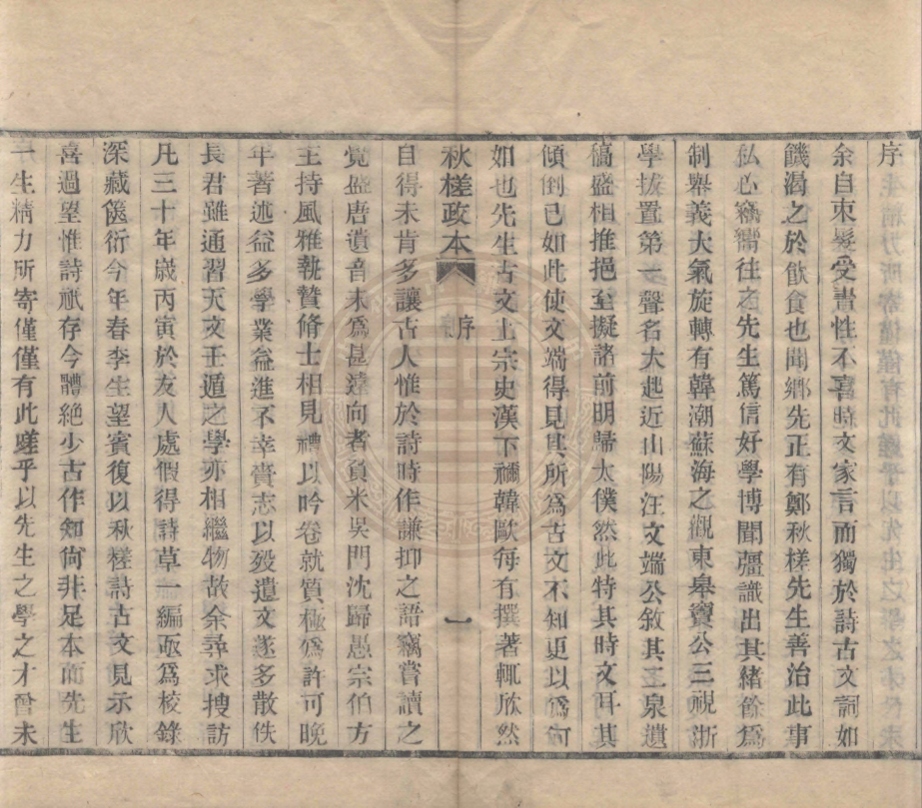 序
余自束髮受書性不喜時文家言而獨於詩古文詞如
饑渴之於飲食也聞鄉先正有鄭秋槎先生善治此事
私心竊嚮往之先生篤信好學博聞彊識出其緒餘爲
制舉義大氣旋轉有韓潮蘇海之觀東皋竇公三視浙
學拔置第一聲名大起近山陽汪文端公敘其玉泉遺
稿盛相推挹至擬諸前明歸太僕然此特其時文耳其
傾倒已如此使文端得見其所爲古文不知更以爲何
如也先生古文上宗史漢下禰韓歐每有撰著輒欣然
秋槎政本 序 一
自得未肯多讓古人惟於詩時作謙抑之語竊嘗讀之
覺盛唐遺音未爲甚遠向者負米吳門沈歸愚宗伯方
主持風雅執贄脩士相見禮以吟卷就質極爲許可晚
年著述益多學業益進不幸賫志以歿遺文遂多散佚
長君雖通習天文壬遁之學亦相繼物故余尋求搜訪
凡三十年歲丙寅於友人處假得詩草一編亟爲校錄
深藏篋衍今年春李生望賓復以秋槎詩古文見示欣
喜過望惟詩祇存今體絕少古作知尙非足本而先生
一生精力所寄僅僅有此嗟乎以先生之學之才曾未